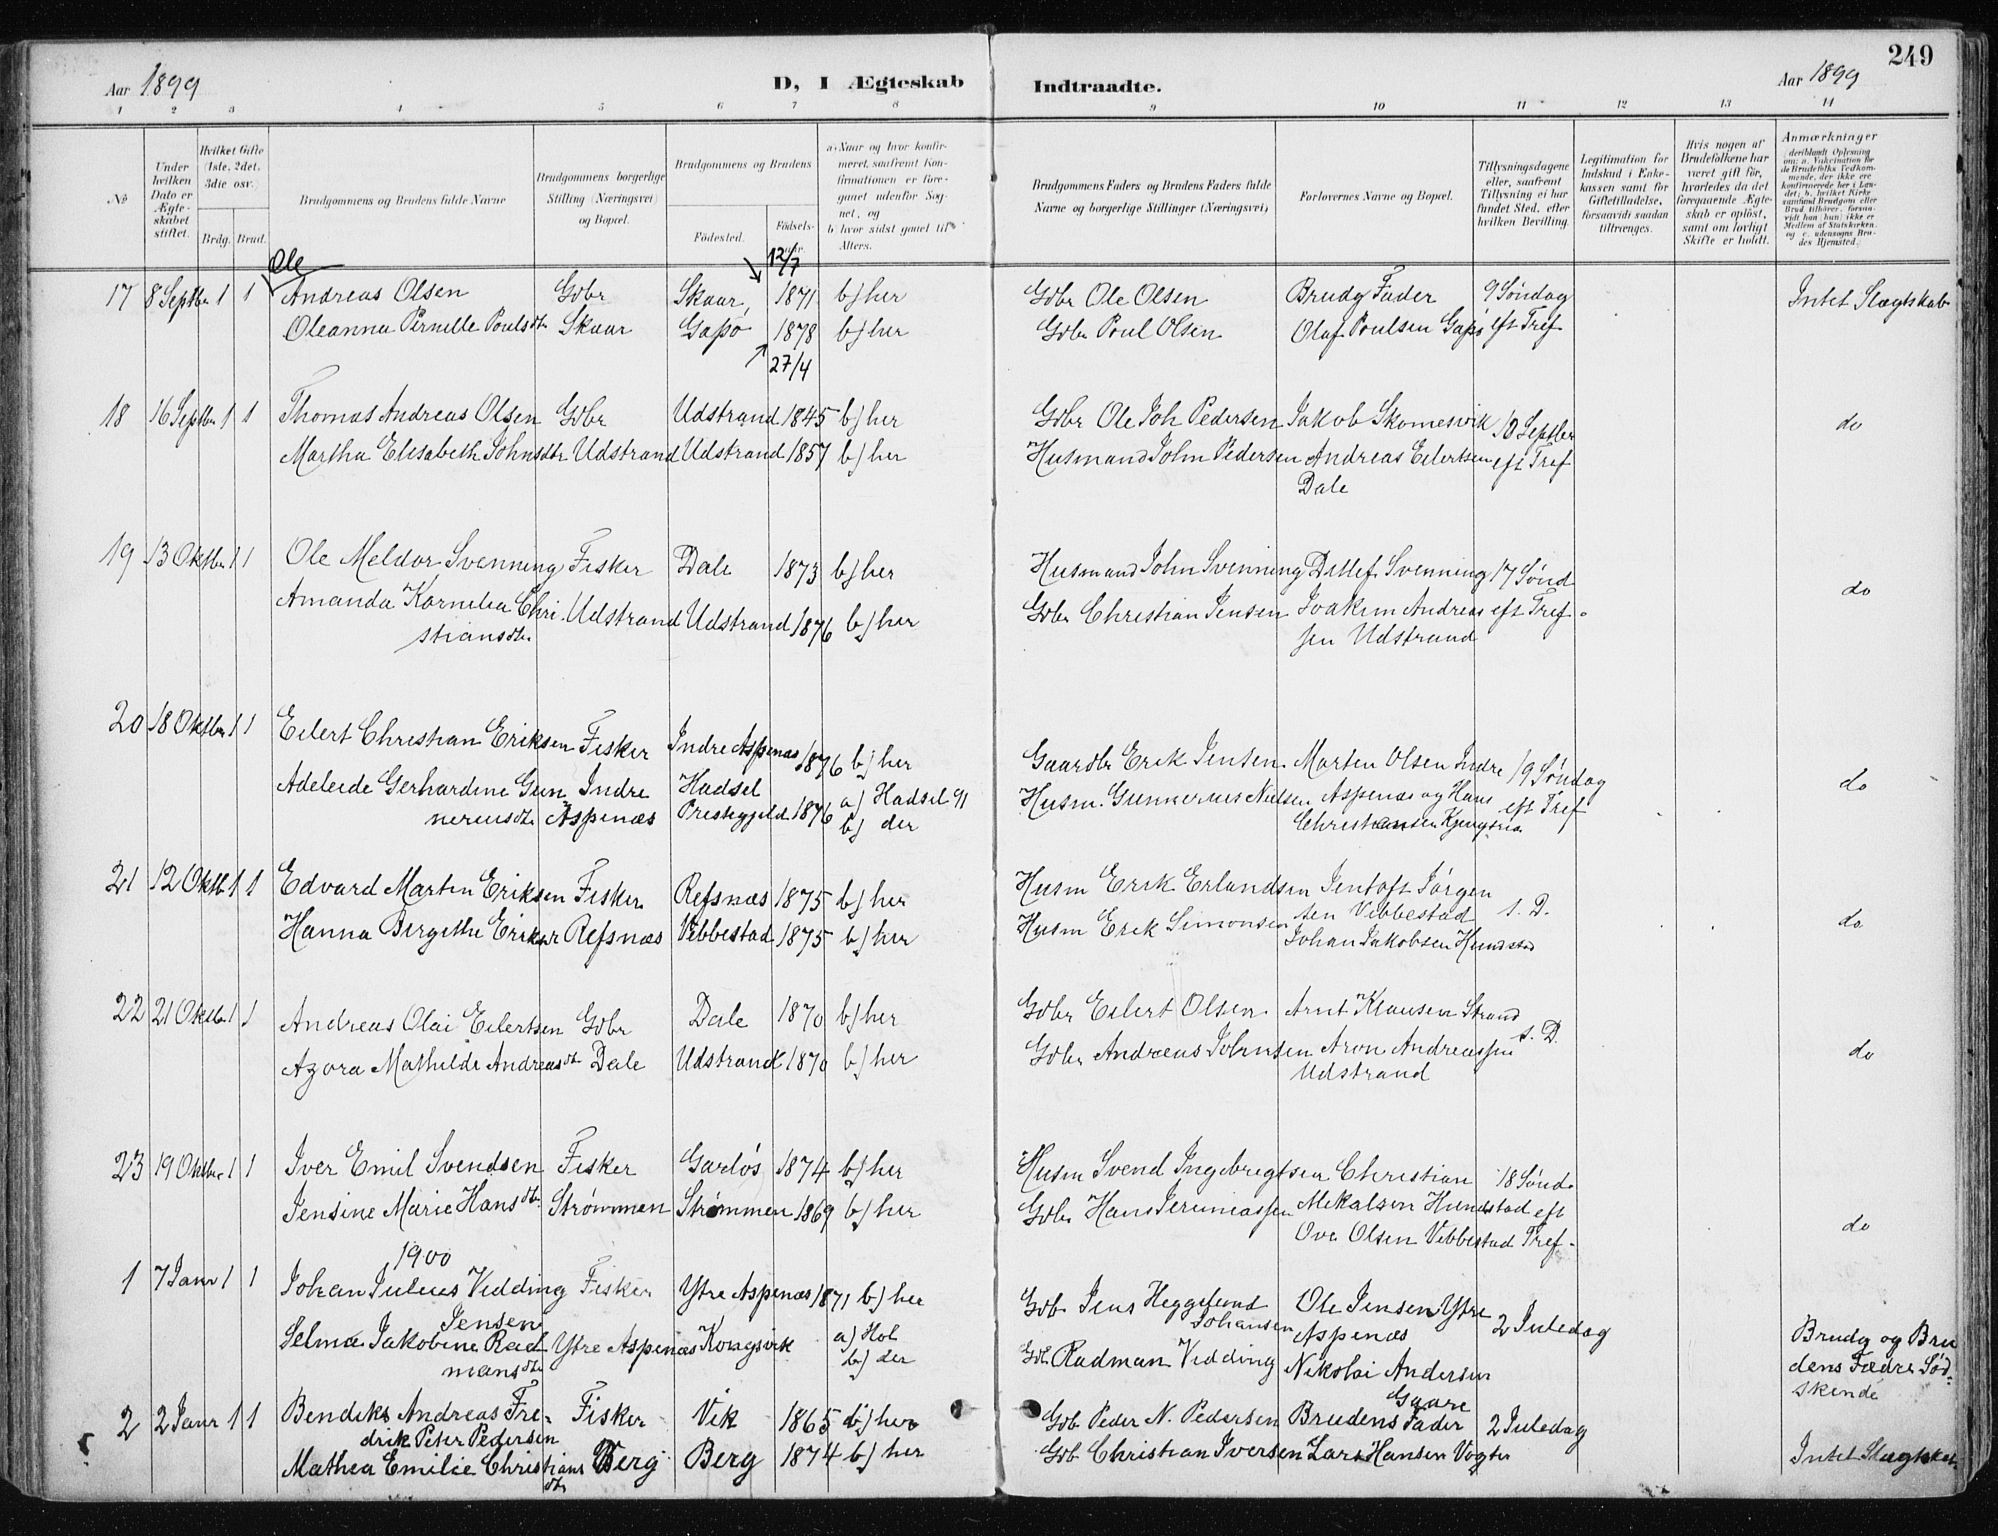 249
Aar 1899 D, I Ægteskab Indtraadte. Aar 1899
1 2 3 4 5 6 7 8 9 10 11 12 13 14
No
Under hvilken Dato er Ægteskabet stiftet.
Hvilket Gifte (1ste, 2det, 3die osv.)
Brdg. Brud.
Brudgommens og Brudens fulde Navne
Brudgommens borgerlige Stilling (Næringsvei) og Bopæl.
Brudgommens og Brudens
Fødested. Fødsels-
a) Naar og hvor konfirmeret, saafremt Konfirmationen er foregaaet udenfor Sognet, og
b) hvor sidst gaaet til Alters.
Brudgommens Faders og Brudens Faders fulde Navne og borgerlige Stillinger (Næringsvei)
Forlovernes Navne og Bopæl.
Tillysningsdagene eller, saafremt Tillysning ei har fundet Sted, efter hvilken Bevilling.
Legitimation for Indskud i Enkekassen samt for Giftetilladelse, forsaavidt saadan tiltrænges.
Hvis nogen af Brudefolkene har været gift før, hvorledes da det foregaaende Ægteskab er opløst, samt om lovligt Skifte er holdt.
Anmærkninger
Ole 12/7
17 8 Septbr 1 1 Andreas Olsen Gbr Skaar 1871 b) her Gbr Ole Olsen Brudg Fader 9 Søndag Intet Slægtskab
Oleanna Pernille Poulsdtr Skaar Gapø 1878 b) her Gbr Poul Olsen Olaf Poulsen Gapø eft Tref
27/4
18 16 Septbr 1 1 Thomas Andreas Olsen Gbr Udstrand 1845 b) her Gbr Ole Joh Pedersen Jakob Skomesvik 10 Septbr do
Martha Elisabeth Johnsdtr Udstrand Udstrand 1857 b) her Husmand John Pedersen Andreas Eilertsen eft Tref
Dale
19 13 Oktbr 1 1 Ole Meldor Svenning Fisker Dale 1873 b) her Husmand John Svenning Detlef Svenning 17 Sønd do
Amanda Kornelia Chri Udstrand Udstrand 1876 b) her Gbr Christian Jensen Joakim Andreas eft Tref
stiansdtr sen Udstrand
20 18 Oktbr 1 1 Eilert Christian Eriksen Fisker Indre Aspenæs 1876 b) her Gaardbr Erik Jensen Morten Olsen Indre 19 Søndag do
Adeleide Gerhardine Gun Indre Hadsel a) Hadsel 91 Husm. Gunnerius Nielsen Aspenæs og Hans eft Tref
neriusdtr Aspenæs Prestegjeld 1876 b) der Christiansen
21 12 Oktb 1 1 Edvard Martin Eriksen Fisker Refsnæs 1875 b) her Husm Erik Erlandsen Jentoft Jørgen
Hanna Bergithe Refsnæs Vebbestad 1875 b) her Husm Erik Simonsen sen Vebbestad s. D. do
Johan Jakobsen Hundstad
22 21 Oktbr 1 1 Andreas Olai Eilertsen Gbr Dale 1870 b) her Gbr Eilert Olsen Arnt Klausen Strand
Azora Mathilde Andreasdtr Dale Udstrand 1870 b) her Gbr Andreas Johnsen Aron Andreassen s. D. do
Udstrand
23 19 Oktbr 1 1 Iver Emil Svendsen Fisker Garlós 1874 b) her Husm Svend Ingebregtsen Christian 18 Sønd
Jensine Marie Hansdtr Strømmen Strømmen 1869 b) her Gbr Hans Jeremiassen Mekalsen Hundstad eft do
Ove Olsen Vebbestad Tref
1900
1 7 Janr 1 1 Johan Julius Vidding Fisker Ytre Aspenæs 1871 b) her Gb Jens Heggelund Ole Jensen Ytre 2 Juledag
Jensen Johansen Aspenæs
Selma Jakobine Rad Ytre Aspenæs Kongsvik a) Hol Gb Radman Vidding Nikolai Andersen Brudg og Bru
mansdtr b) der Gaare dens Fædre Sød-
skende
2 2 Janr 1 1 Bendiks Andreas Fre- Fisker Vik 1865 b) her Gb Peder N. Pedersen Brudens Fader 2 Juledag
drik Peter Pedersen
Mathea Emilie Christians Berg Berg 1874 b) her Gb Christian Iversen Lars Hansen Intet Slægtskab
dtr